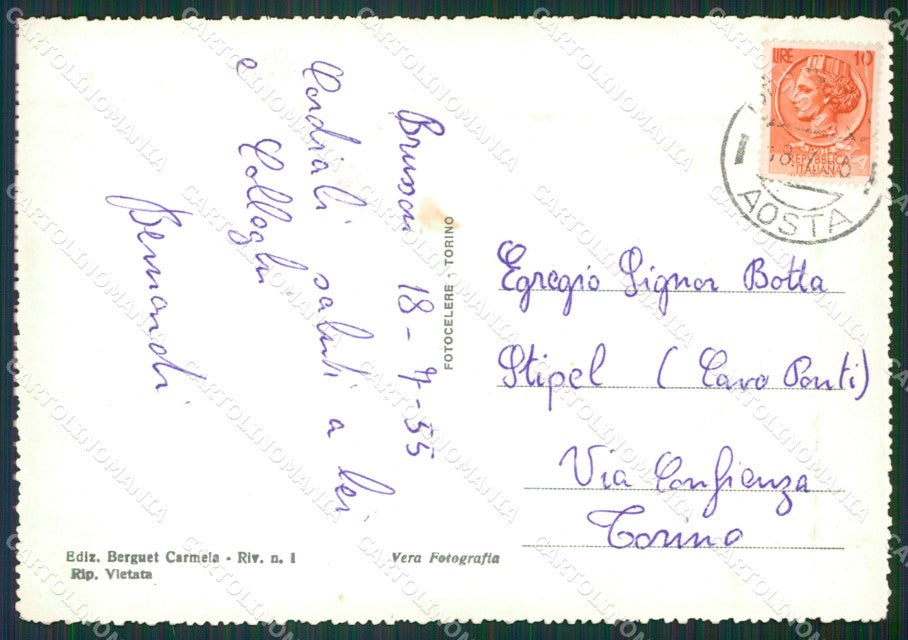 Brusson 18-7-55
Cordiali saluti a lei
e Colleghi
Bernardi
FOTOCELERE - TORINO
LIRE 10
POSTE
REPVBBLICA
ITALIANA
AOSTA
Egregio Signor Botta
Stipel ( Cavo Ponti)
Via Confienza
Torino
Ediz. Berguet Carmela - Riv. n. 1
Rip. Vietata
Vera Fotografia
CARTOLINOMANIA